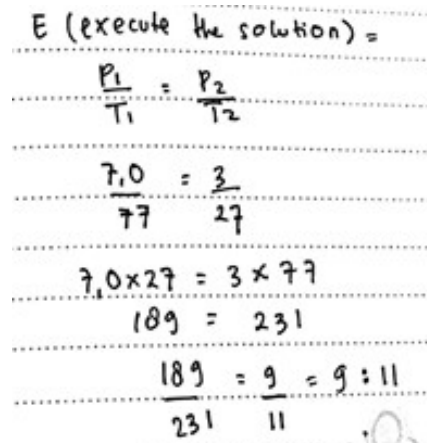 E (execute the solution) =
P1/T1 = P2/T2
7,0/77 = 3/27
7,0x27 = 3 x 77
189 = 231
189/231 = 9/11 = 9 : 11